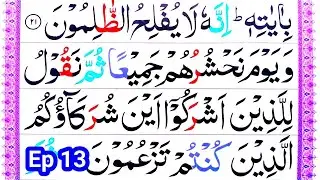 بِاٰيٰتِهٖ ؕ اِنَّهٗ لَا يُفْلِحُ الظّٰلِمُوْنَ ﴿۲۱﴾
وَيَوْمَ نَحْشُرُهُمْ جَمِيْعًا ثُمَّ نَقُوْلُ
لِلَّذِيْنَ اَشْرَكُوْۤا اَيْنَ شُرَكَآؤُكُمُ
الَّذِيْنَ كُنْتُمْ تَزْعُمُوْنَ
Ep 13